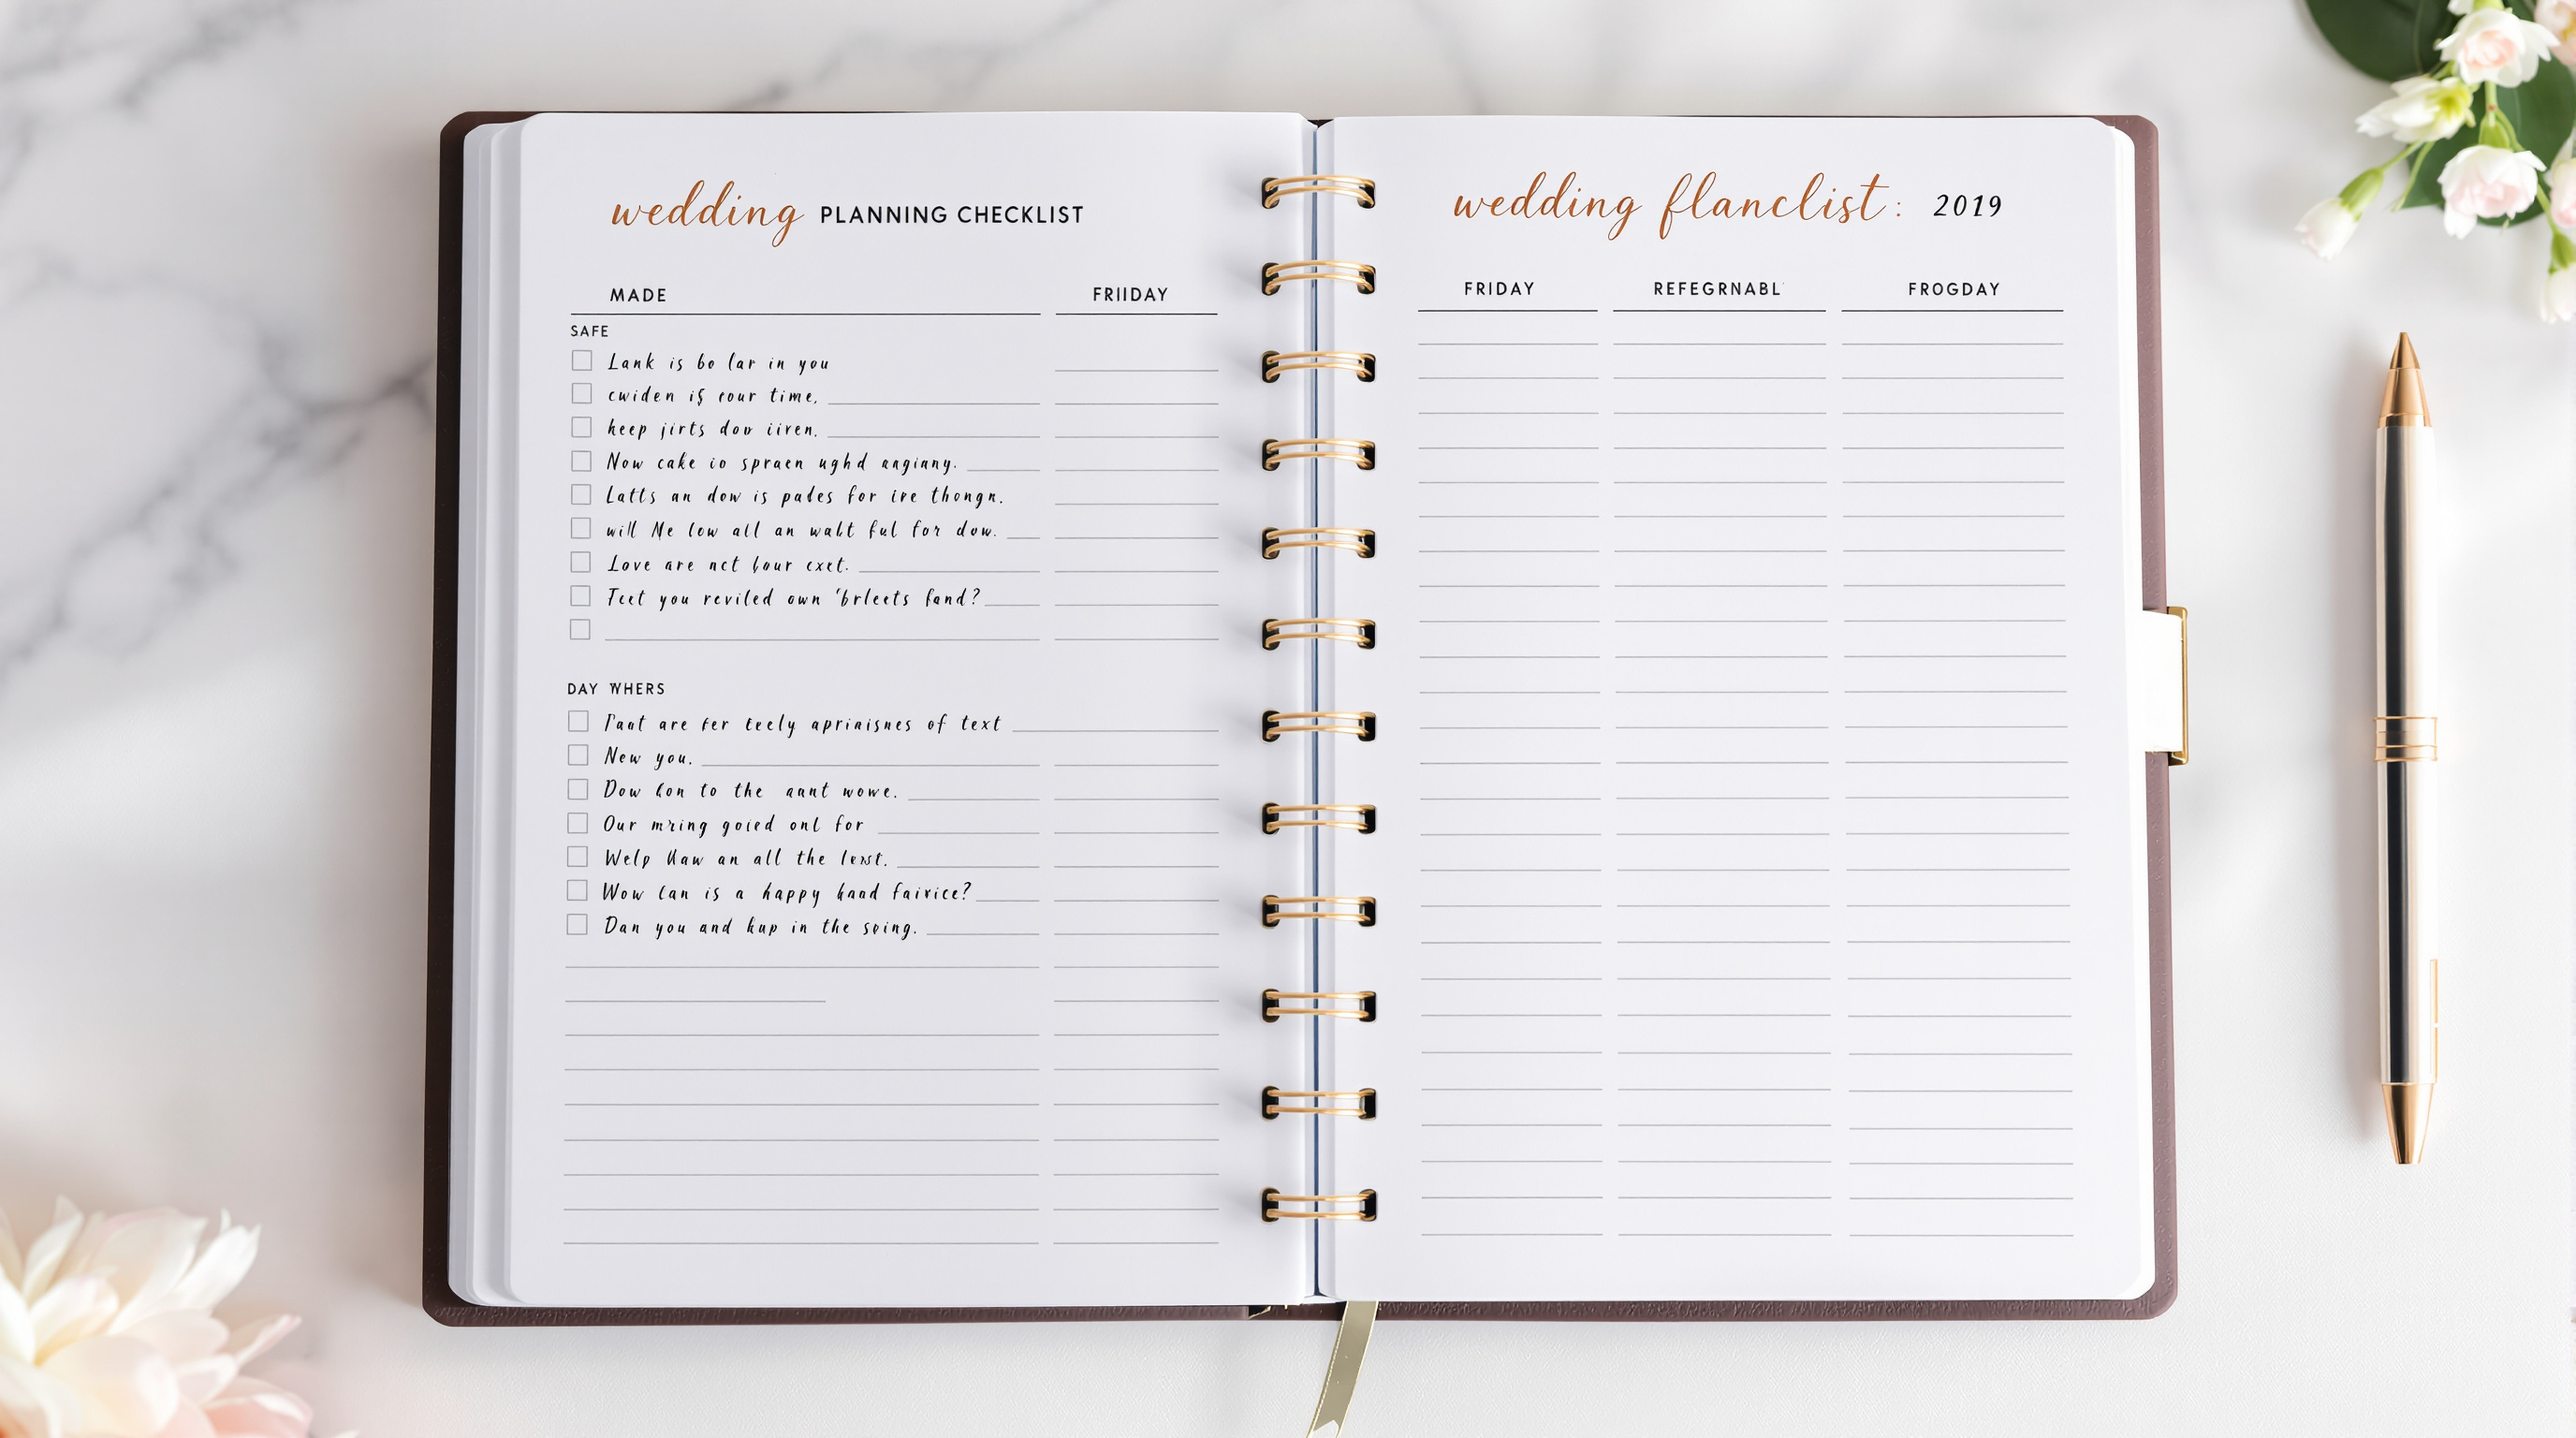 wedding PLANNING CHECKLIST
MADE FRIIDAY
SAFE
Lank is bo lar in you
cwiden is rour time.
keep jirts dow iiven.
Now cake io spraen ughd angiany.
Latts an dow is pades for ire thongn.
will Me low all an walt ful for dow.
Love are nct four cxct.
Tect you reviled own 'brleets fand?
DAY WHERS
are fer teely apriaisnes of text
New you.
Dow to the aant wowe.
Our mring goied onl for
Welp an all the
Wow is a happy haad fairice?
Dan you and kup in the
wedding flanclist: 2019
FRIDAY REFEGRNABL FROGDAY